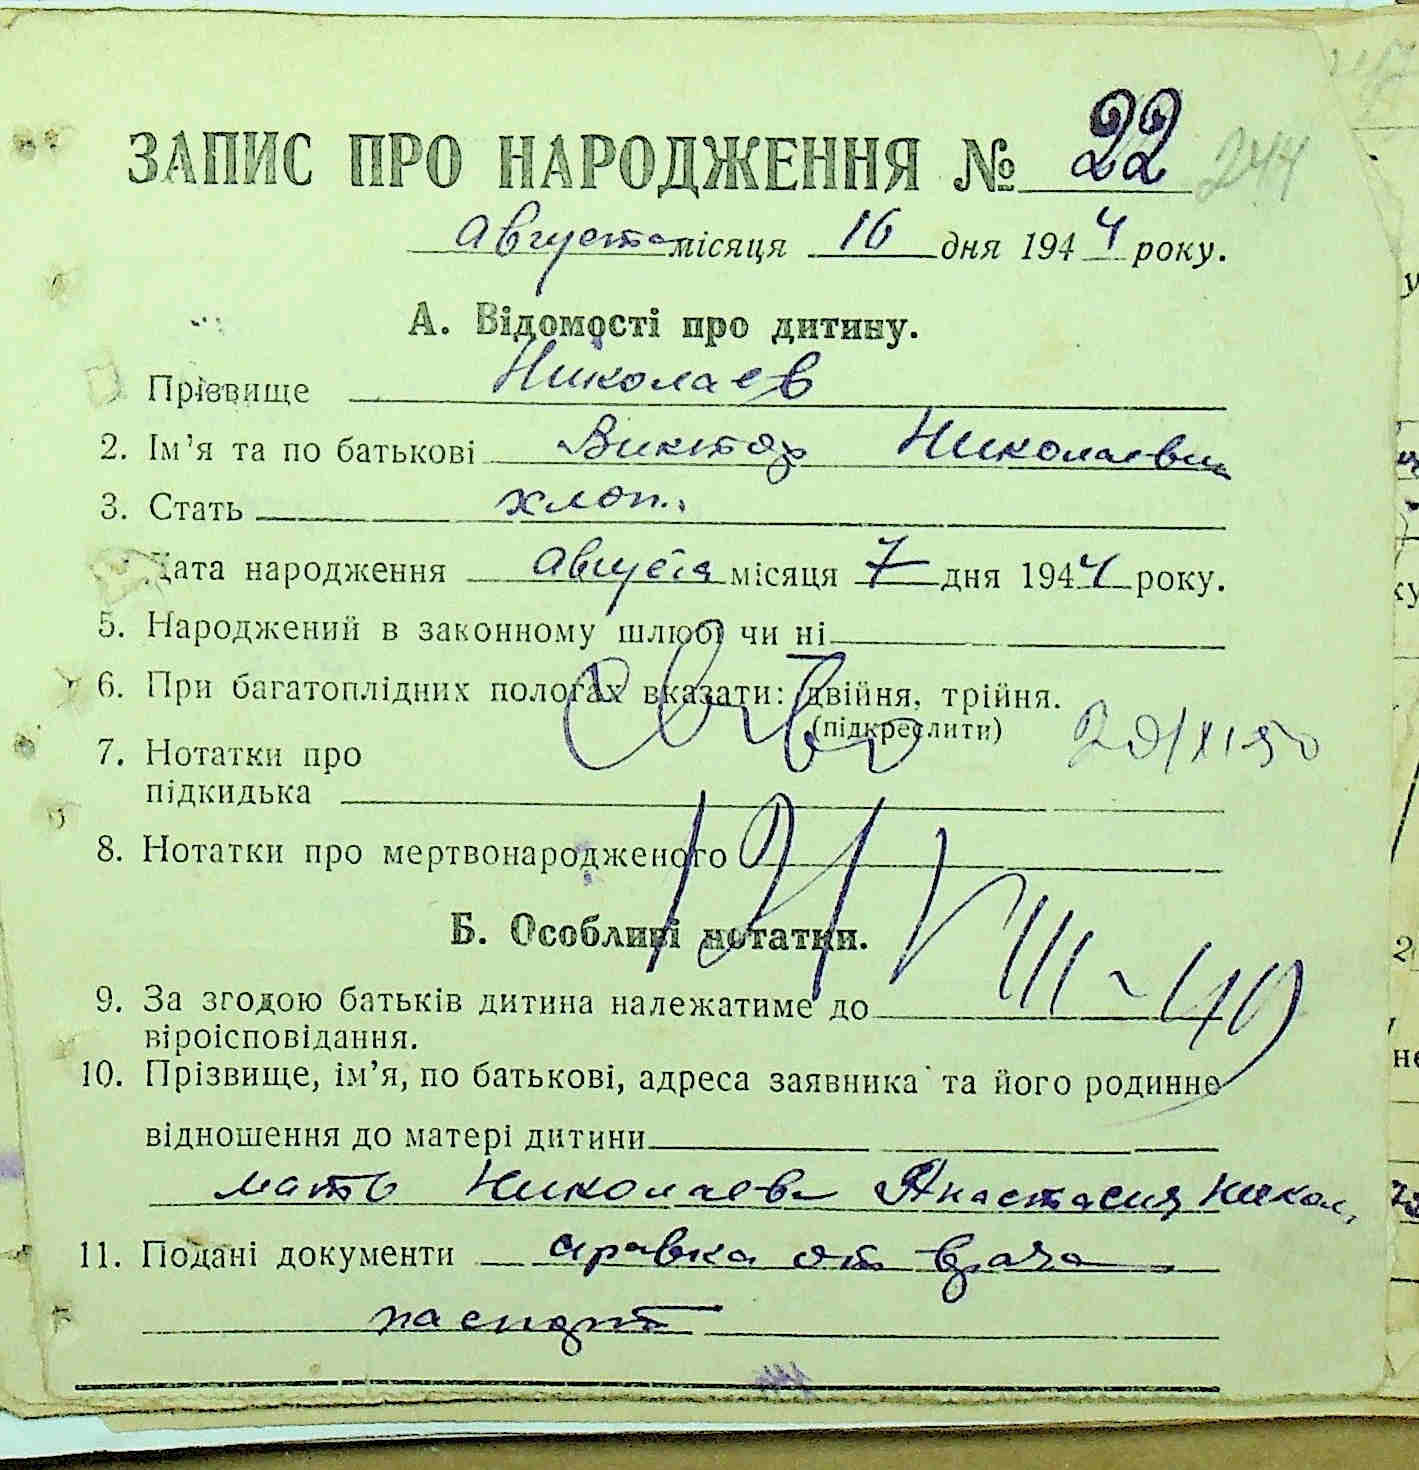 ЗАПИС ПРО НАРОДЖЕННЯ № 22 244
августа місяця 16 дня 1944 року.
А. Відомості про дитину.
Прізвище Николаев
2. Ім’я та по батькові Виктор Николаевич
3. Стать хлоп.
Дата народження августа місяця 7 дня 1944 року.
5. Народжений в законному шлюбі чи ні
6. При багатоплідних пологах вказати: двійня, трійня.
(підкреслити)
7. Нотатки про
підкидька
8. Нотатки про мертвонародженого
Б. Особливі нотатки.
9. За згодою батьків дитина належатиме до
віроісповідання.
10. Прізвище, ім’я, по батькові, адреса заявника та його родинне
відношення до матері дитини
мать Николаева Анастасия Никол.
11. Подані документи справка от врача
паспорт